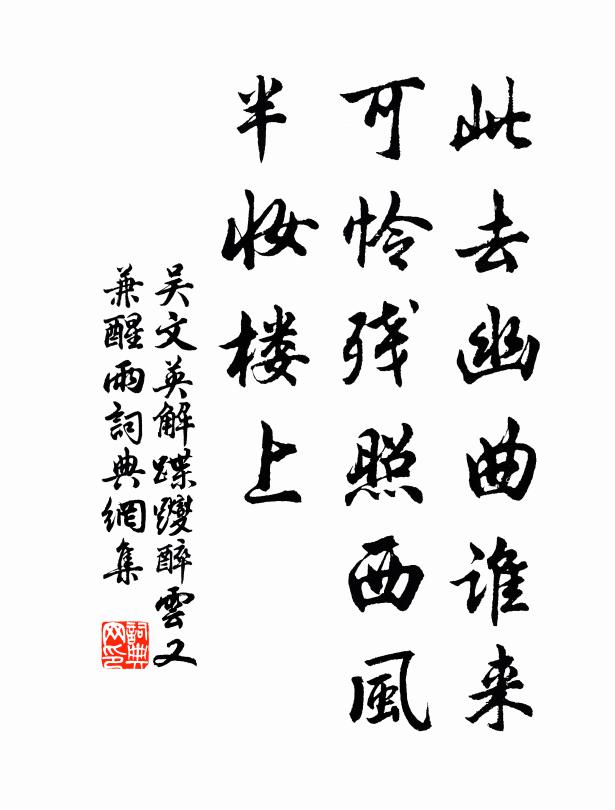 此去幽曲谁来
可怜残照西風
半妆楼上
吴文英解蹀躞醉雲又
兼醒雨詞典網集
詞典网印